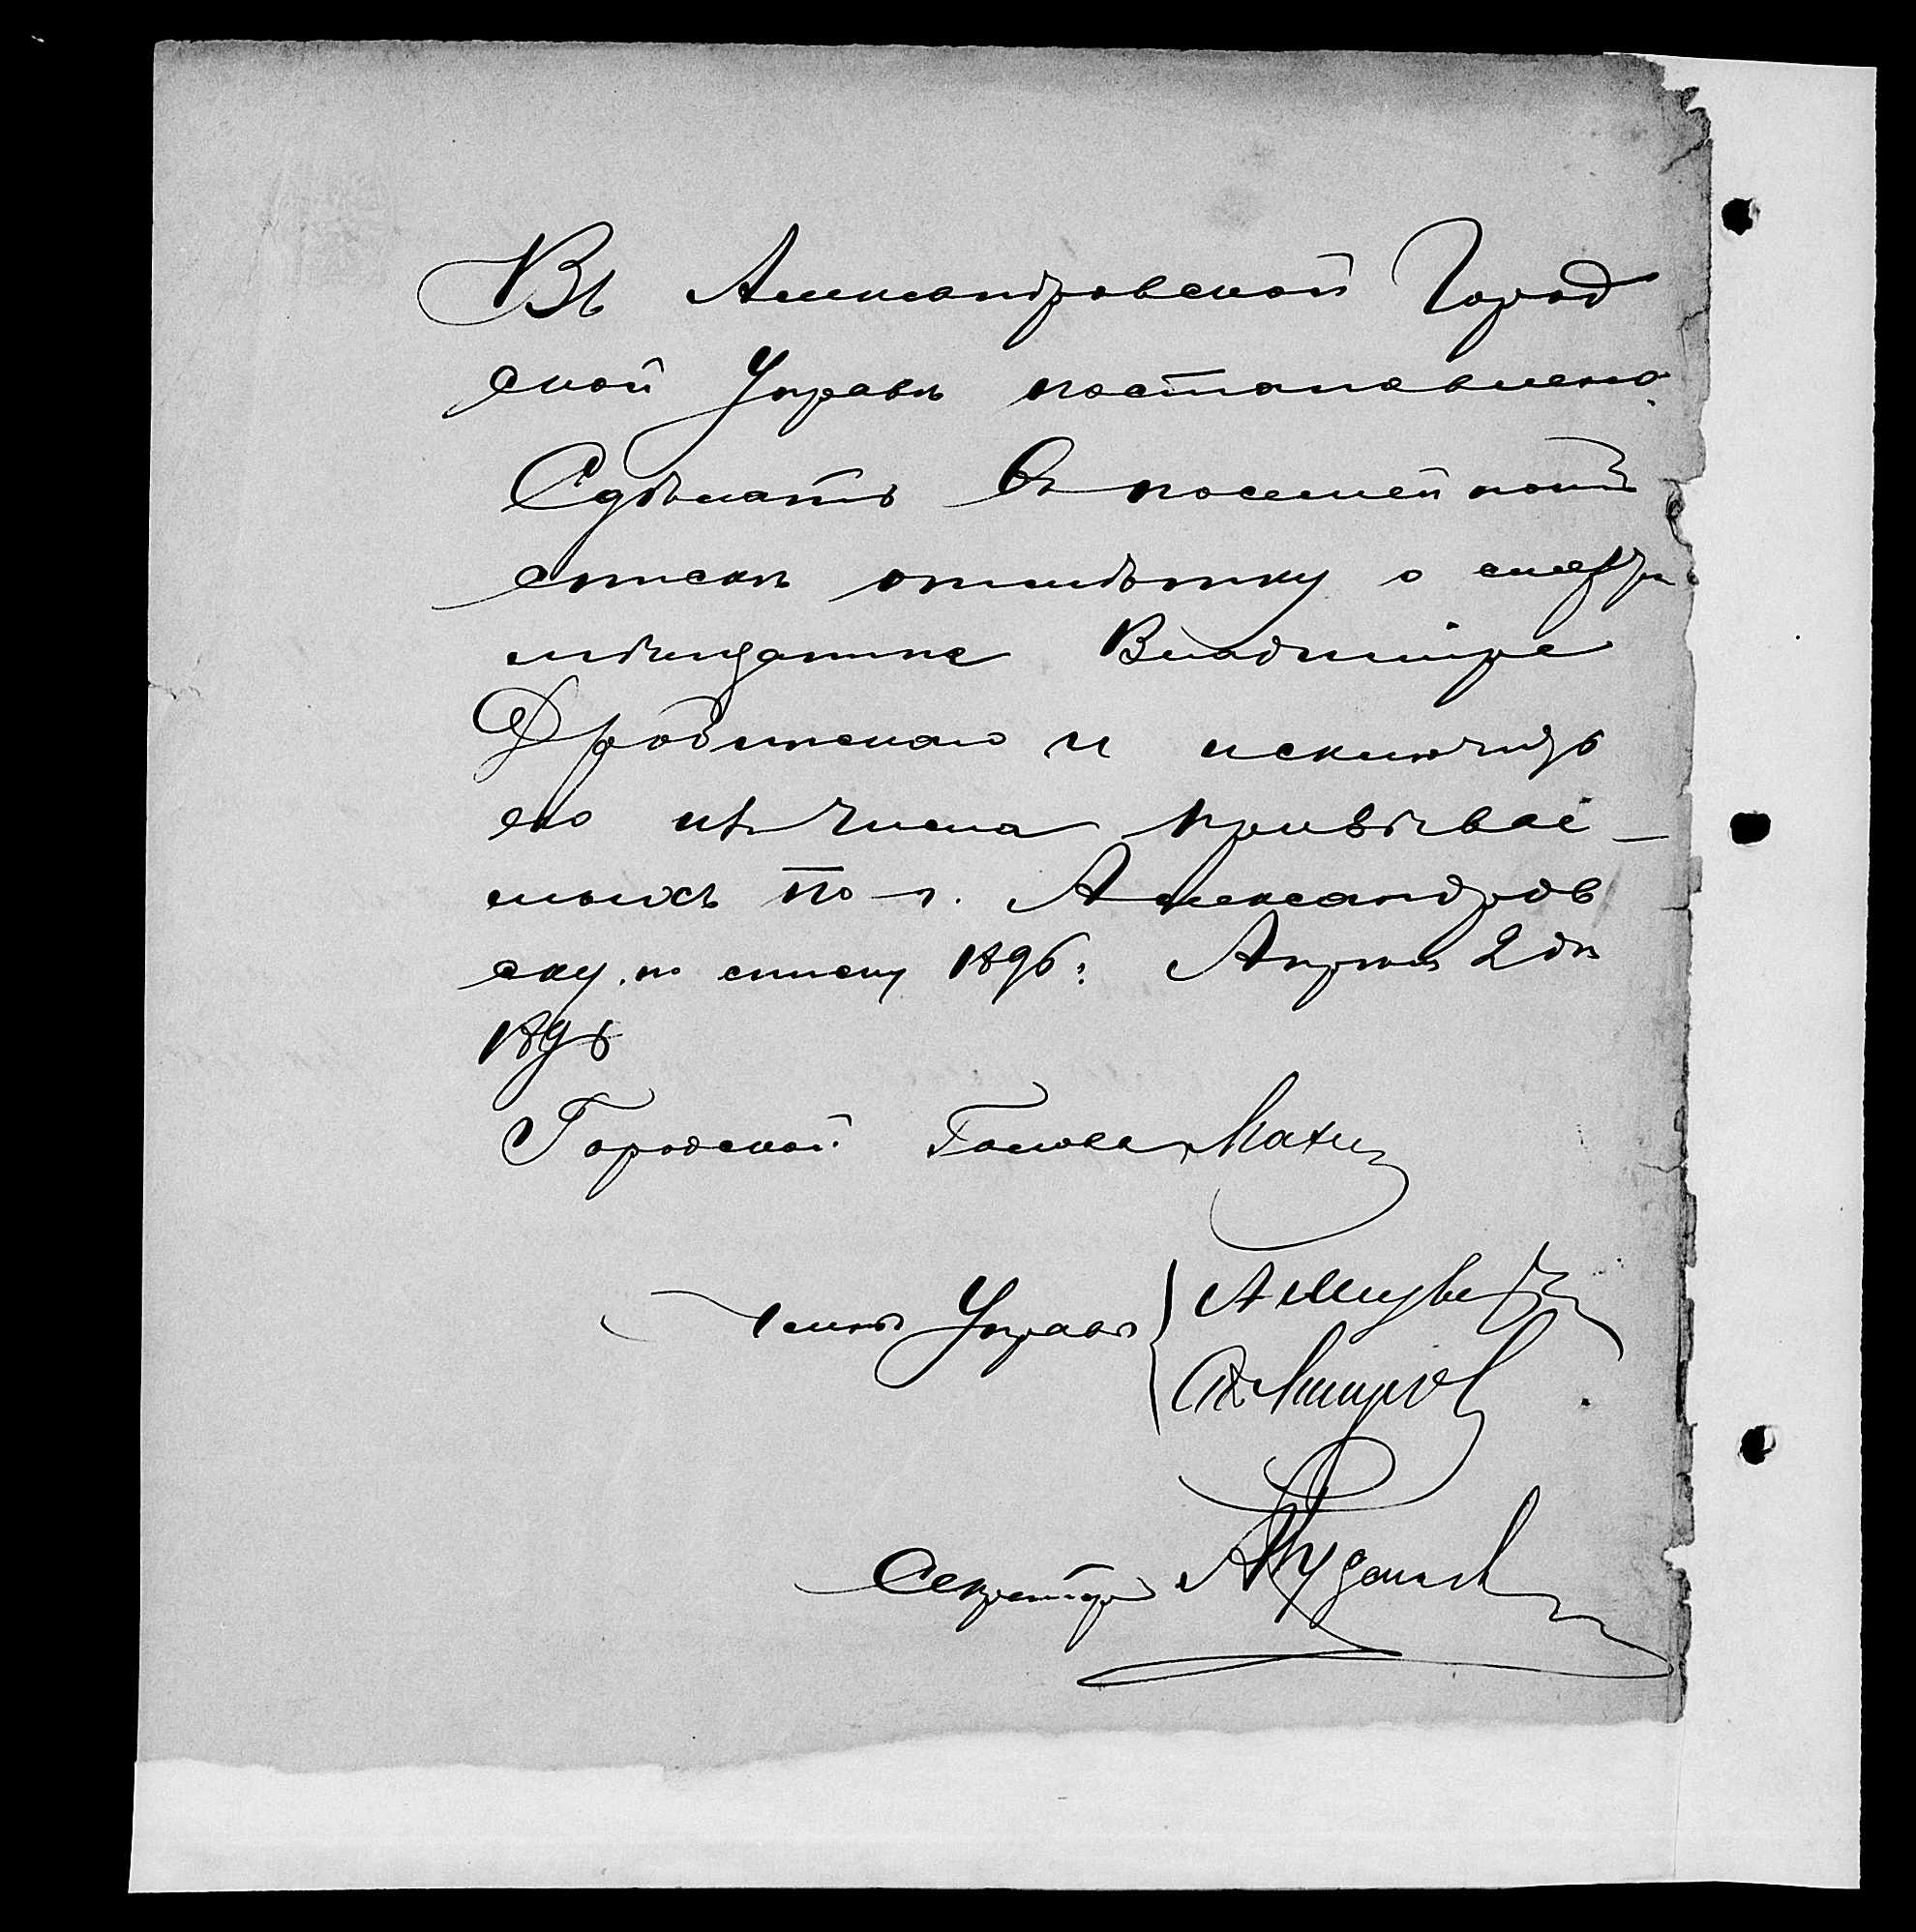 Въ Александровской Город
ской Управѣ постановлено:
Сдѣлать въ посемейномъ
спискѣ отмѣтку о смерти
мѣщанина Владиміра
Дробинскаго и исключить
его изъ числа призывае-
мыхъ по г. Александров
ску по списку 1896 г. Апрѣля 2 дн
1896
Городской Голова
Члены Управы
Секретарь